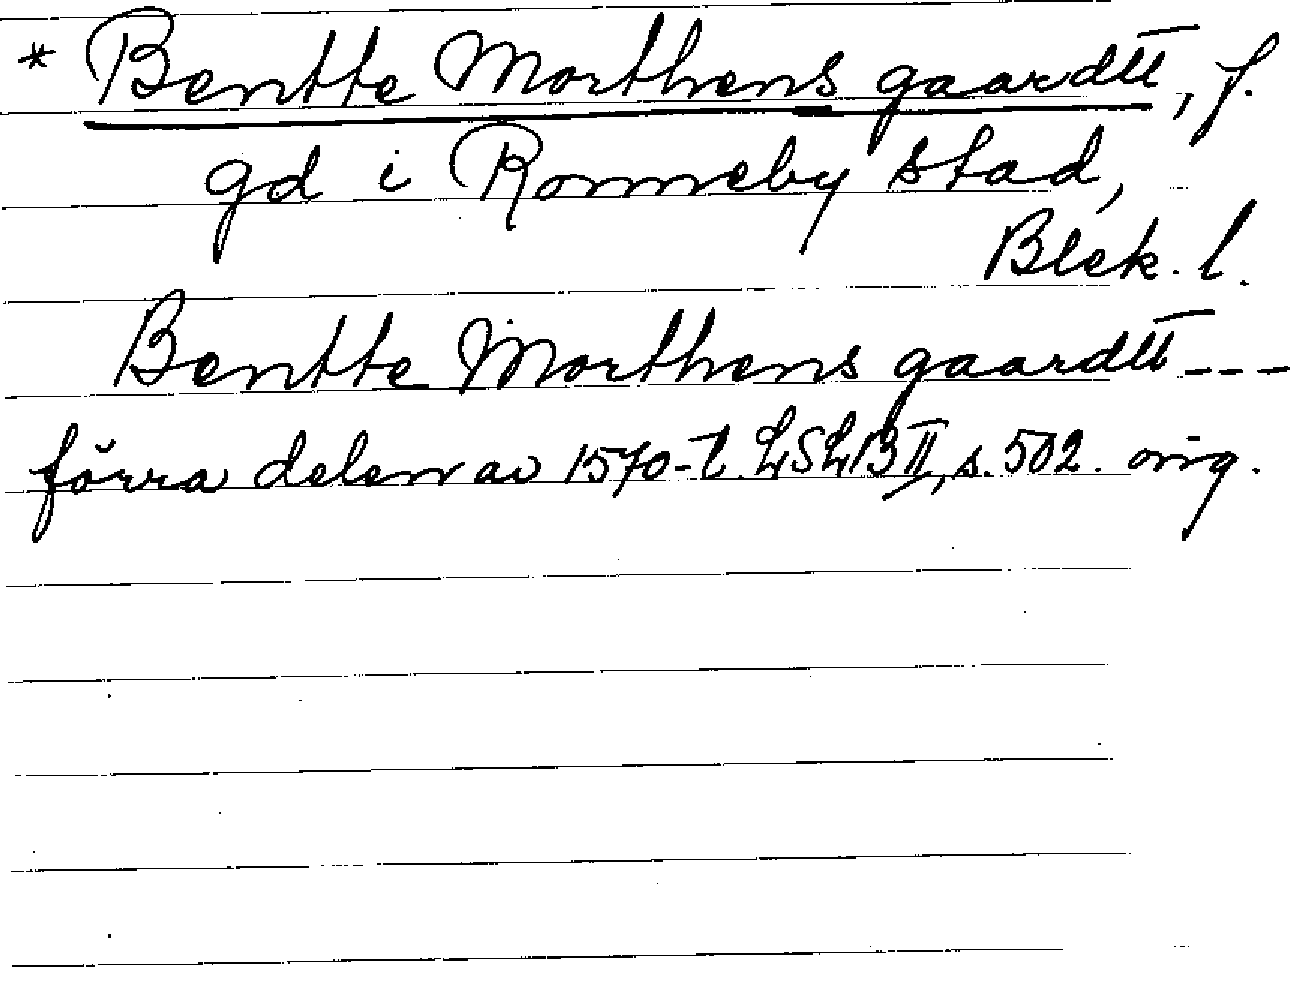 * Bentte Morthens gaardtt, f.
gd i Ronneby stad,
Blek. l.
Bentte Morthens gaardtt ---
förra delen av 1570-t. LSLB II, s. 502. orig.